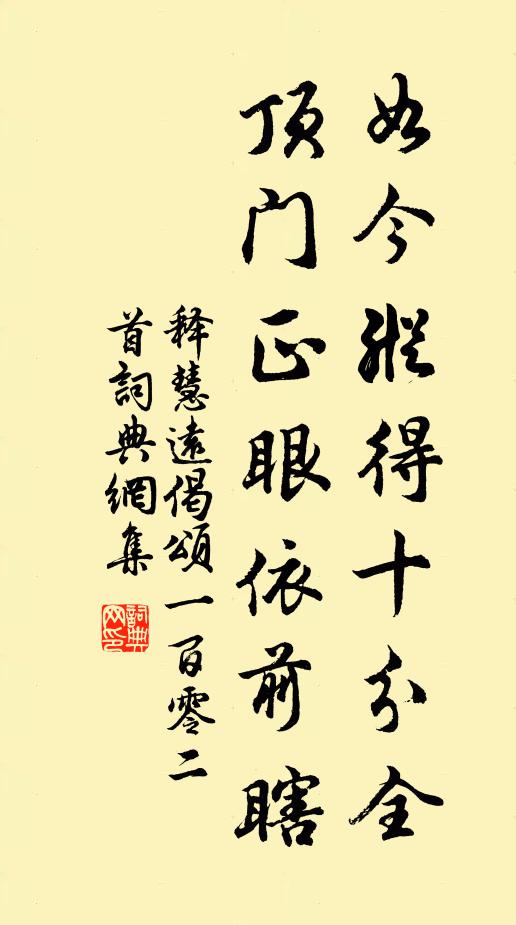 如今縱得十分全
頂门正眼依前瞎
释慧遠偈頌一百零二
首詞典網集
詞典
网印